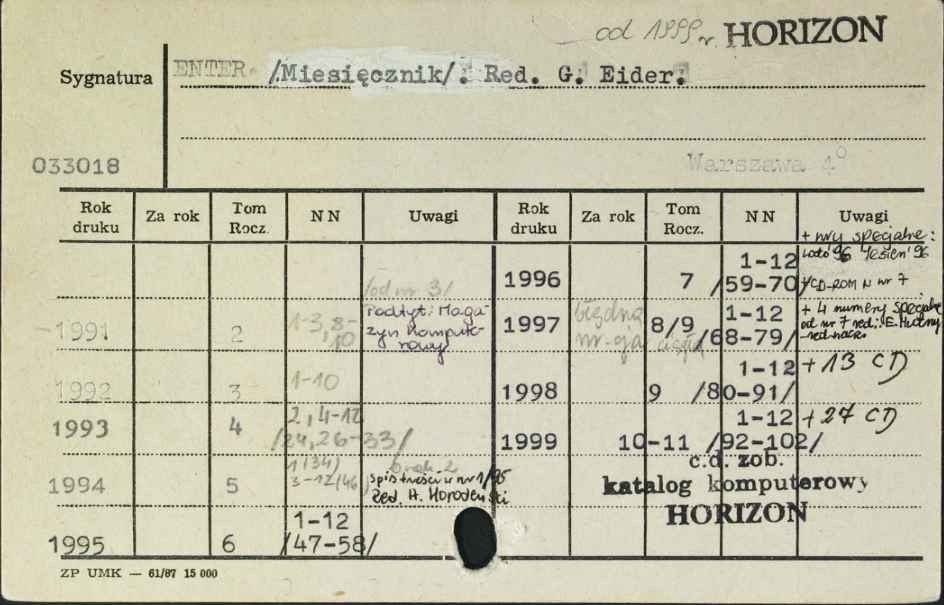 od 1999 r. HORIZON
Sygnatura
ENTER. /Miesięcznik/. Red. G. Eider.
033018
Warszawa 4°
Rok druku Za rok Tom Rocz. NN Uwagi Rok druku Za rok Tom Rocz. NN Uwagi
1991 2 1-3, 8-10 /od nr 3/ Podtyt: Magazyn Kompute-rowy
1992 3 1-10
1993 4 2, 4-12 /24, 26-33/
1994 5 1(34) 3-12/46/ brak 2 spis treści w nr 1/95 Red. H.
1995 6 1-12 /47-58/
1996 7 1-12 /59-70/ + nry specjalne: '96 Jesień '96 /CD-ROM w nr 7
1997 błędna nr-cja 8/9 1-12 /68-79/ + 4 numery specjalne od nr 7 red.:
1998 9 1-12 /80-91/ + 13 CD
1999 10-11 1-12 /92-102/ + 27 CD
c.d. zob.
katalog komputerowy
HORIZON
ZP UMK — 61/87 15 000